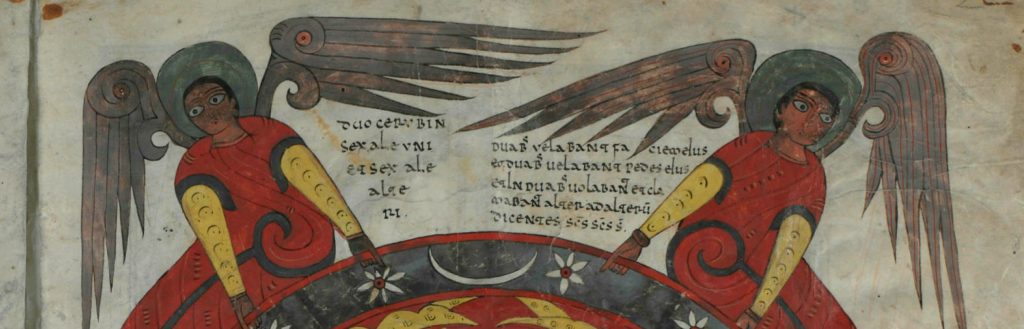 DUO CERUBIN
SEX ALE UNI
ET SEX ALE
ALTE
RI.
DUAB; VELABANT FACIEM EIUS
ET DUAB; UELABANT PEDES EIUS
ET IN DUAB; UOLABANT ET CLA
MABANT ALTER AD ALTERŪ
DICENTES, S̄C̄S S̄C̄S S̄